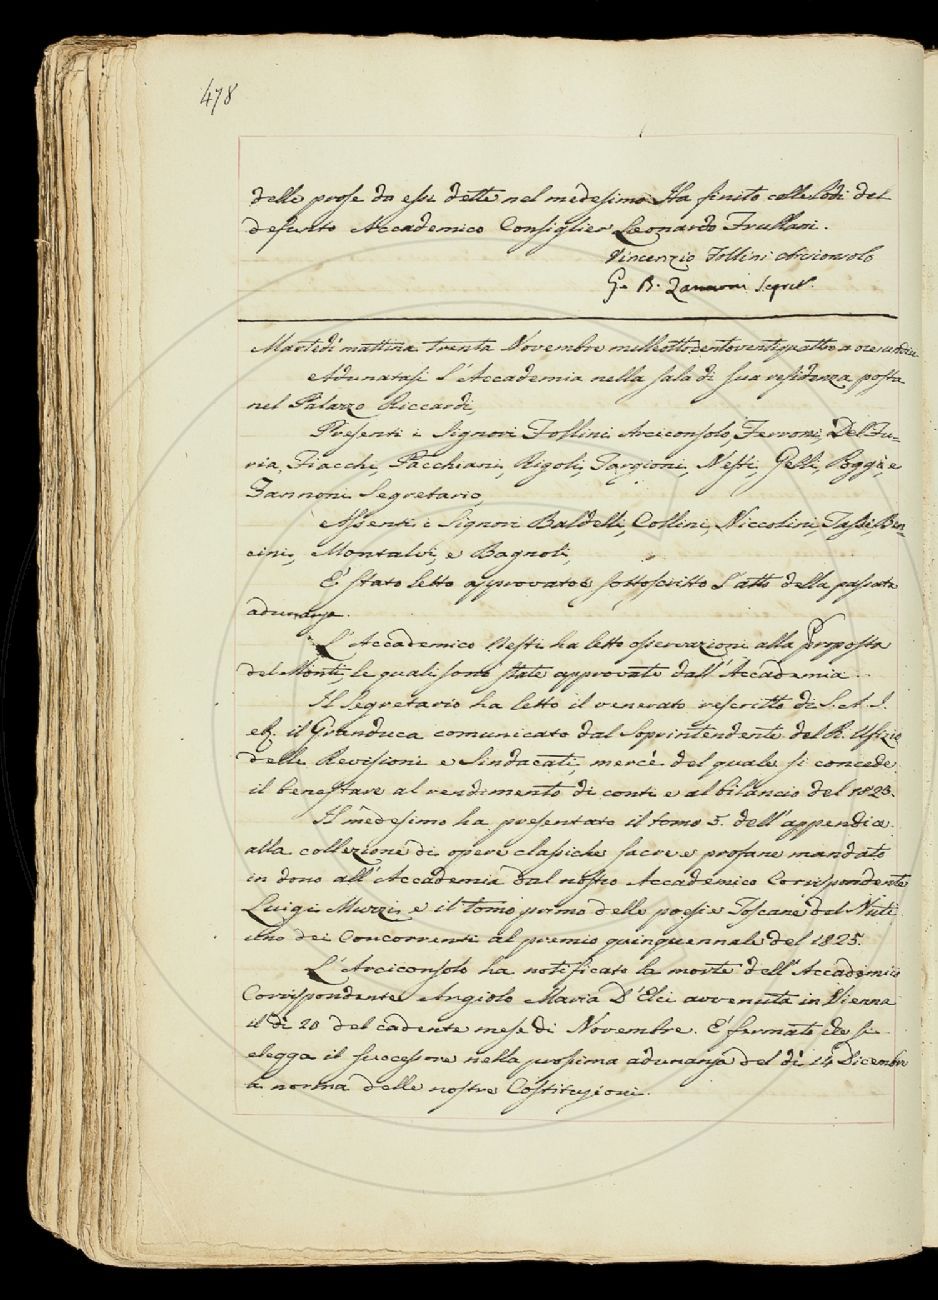 478
delle prose da essi dette nel medesimo. Ha finito colle Lodi del
defunto Accademico Consiglier Leonardo Frullani.
Vincenzio Follini Arciconsolo
G. B. Zannoni Segret.
Martedì mattina trenta Novembre milleottocentoventiquattro a ore undici
Adunatasi l'Accademia nella sala di sua residenza posta
nel Palazzo Riccardi,
Presenti i Signori Follini Arciconsolo, Ferroni, Del Fu-
ria, Fiacchi, Pacchiani, Rigoli, Targioni, Nesti, Gelli, Poggi, e
Zannoni Segretario,
Assenti i Signori Baldelli, Collini, Niccolini, Tassi, Ben-
cini, Montalvi, e Bagnoli,
È stato letto approvato e sottoscritto l'atto della passata
adunanza.
L'Accademico Nesti ha letto osservazioni alla Proposta
del Monti, le quali sono state approvate dall'Accademia.
Il Segretario ha letto il venerato rescritto di S. A. I.
e R. il Granduca comunicato dal Soprintendente del R. Ufizio
delle Revisioni e Sindacati, mercè del quale si concede
il benestare al rendimento di conti e al bilancio del 1823.
Il medesimo ha presentato il tomo 5. dell'appendice
alla collezione di opere classiche sacre e profane mandato
in dono all'Accademia dal nostro Accademico Corrispondente
Luigi Muzzi, e il tomo primo delle poesie Toscane del Nuti
uno dei Concorrenti al premio quinquennale del 1825.
L'Arciconsolo ha notificato la morte dell'Accademico
Corrispondente Angiolo Maria D'Elci avvenuta in Vienna
il dì 20 del cadente mese di Novembre. È fermato che si
elegga il successore nella prossima adunanza del dì 14 Dicembre
a norma delle nostre Costituzioni.